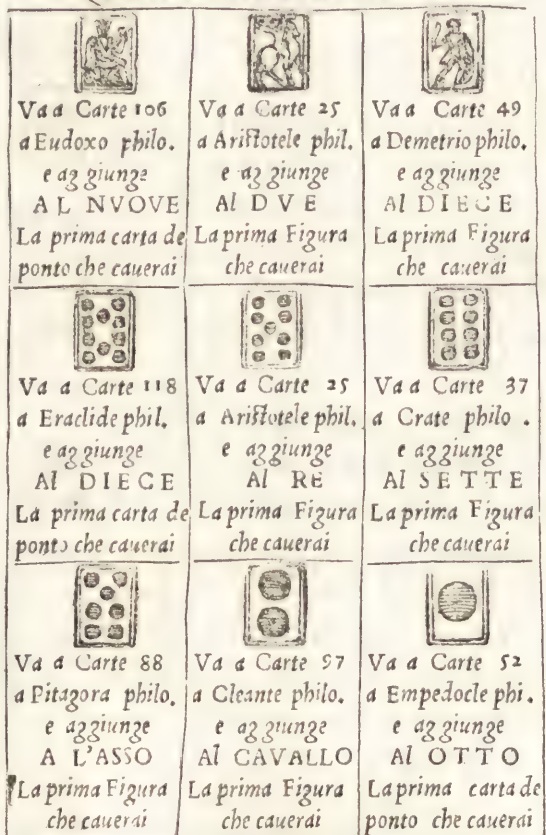 Va a Carte 106
a Eudoxo philo.
e aggiunge
AL NVOVE
La prima carta de
ponto che cauerai
Va a Carte 25
a Aristotele phil.
e aggiunge
Al DVE
La prima Figura
che cauerai
Va a Carte 49
a Demetrio philo.
e aggiunge
Al DIECE
La prima Figura
che cauerai
Va a Carte 118
a Eraclide phil.
e aggiunge
Al DIECE
La prima carta de
ponto che cauerai
Va a Carte 25
a Aristotele phil.
e aggiunge
Al RE
La prima Figura
che cauerai
Va a Carte 37
a Crate philo .
e aggiunge
Al SETTE
La prima Figura
che cauerai
Va a Carte 88
a Pitagora philo.
e aggiunge
A L'ASSO
La prima Figura
che cauerai
Va a Carte 97
a Cleante philo.
e aggiunge
Al CAVALLO
La prima Figura
che cauerai
Va a Carte 52
a Empedocle phi.
e aggiunge
Al OTTO
La prima carta de
ponto che cauerai